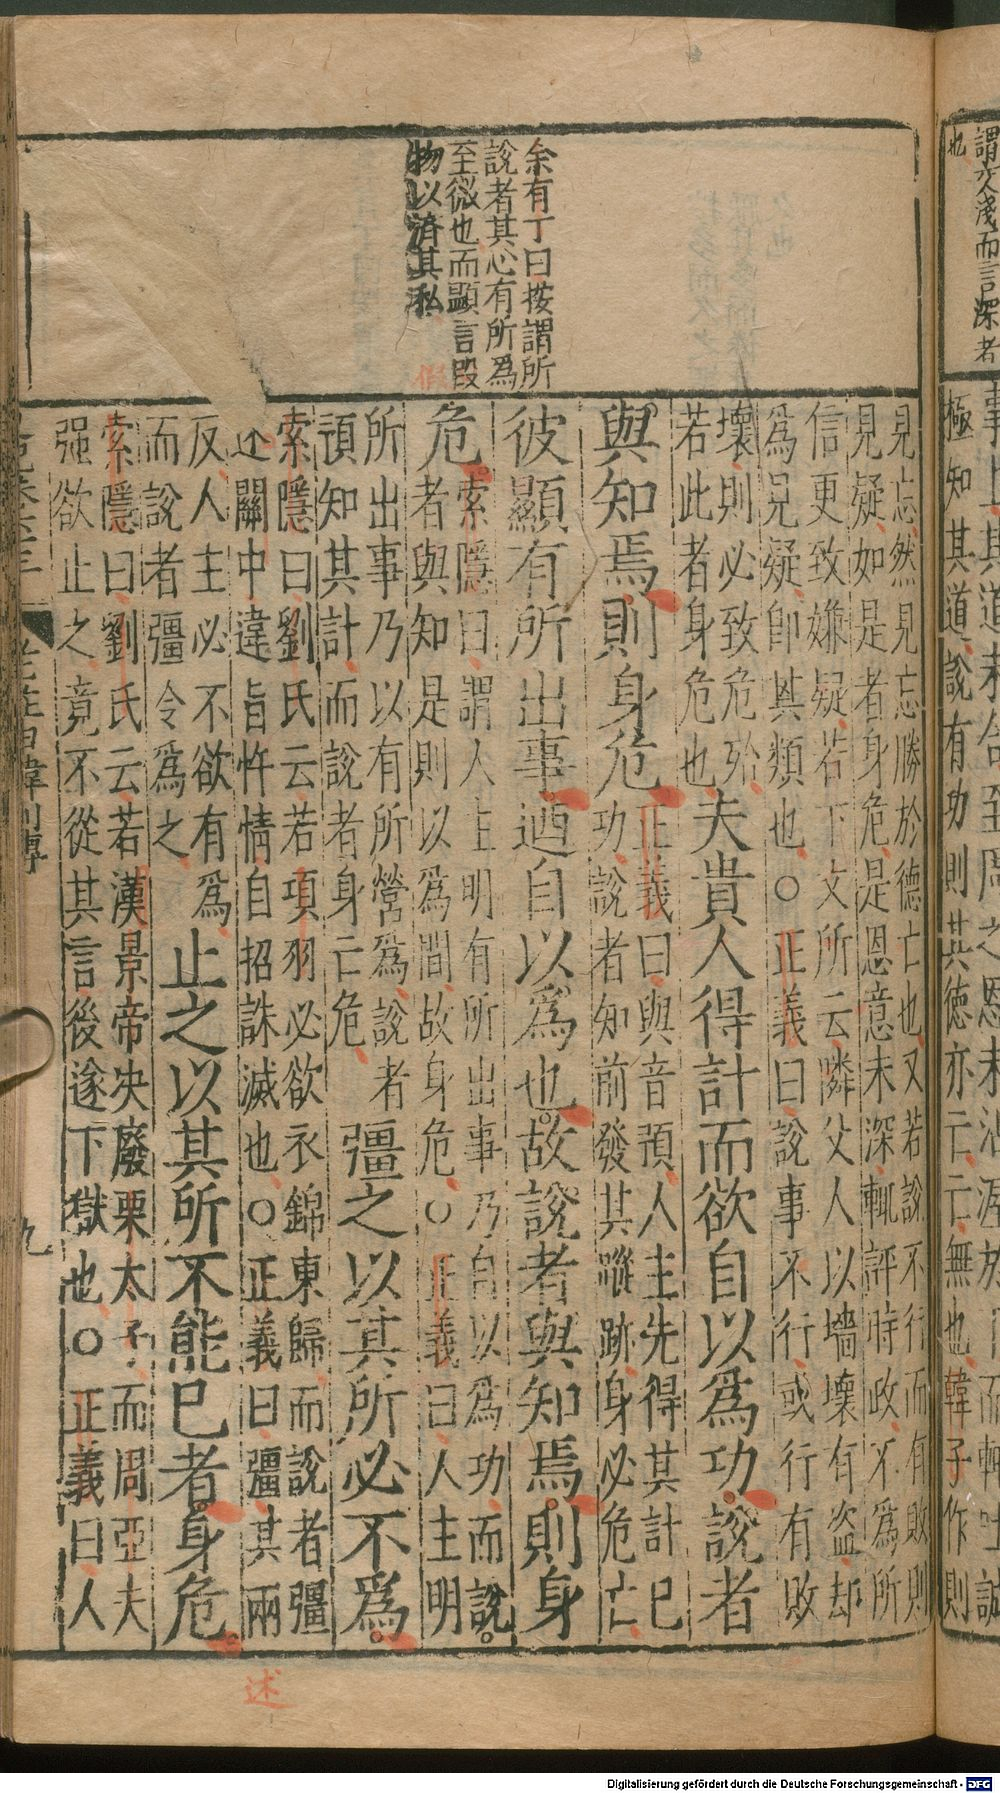 謂交淺而言深者
也
事上其道未合至周之恩未沾渥於下而輒吐誠
極知其道說有功則其德亦亡亡無也韓子作則
余有丁曰按謂所
說者其心有所爲
至微也而顯言毀
物以濟其私
假
見忘然見忘勝於德亡也又若說不行而有敗則
見疑如是者身危是恩意未深輒評時政不爲所
信更致嫌疑若下文所云隣父人以墻壞有盗却
爲見疑卽其類也○正義曰說事不行或行有敗
壞則必致危殆
若此者身危也
夫貴人得計而欲自以爲功說者
與知焉則身危
正義曰與音預人主先得其計已
功說者知前發其蹤跡身必危亡
彼顯有所出事迺自以爲也故說者與知焉則身
危
索隱曰謂人主明有所出事乃自以爲功而說
者與知是則以爲間故身危○正義曰人主明
所出事乃以有所營爲說者
預知其計而說者身亡危
彊之以其所必不爲
索隱曰劉氏云若項羽必欲衣錦東歸而說者彊
述關中違旨忤情自招誅滅也○正義曰彊其兩
反人主必不欲有爲
而說者彊令爲之
止之以其所不能已者身危
索隱曰劉氏云若漢景帝决廢栗太子而周亞夫
强欲止之竟不從其言後遂下獄也○正義曰人
述
老莊申韓列傳
九
Digitalisierung gefördert durch die Deutsche Forschungsgemeinschaft - DFG